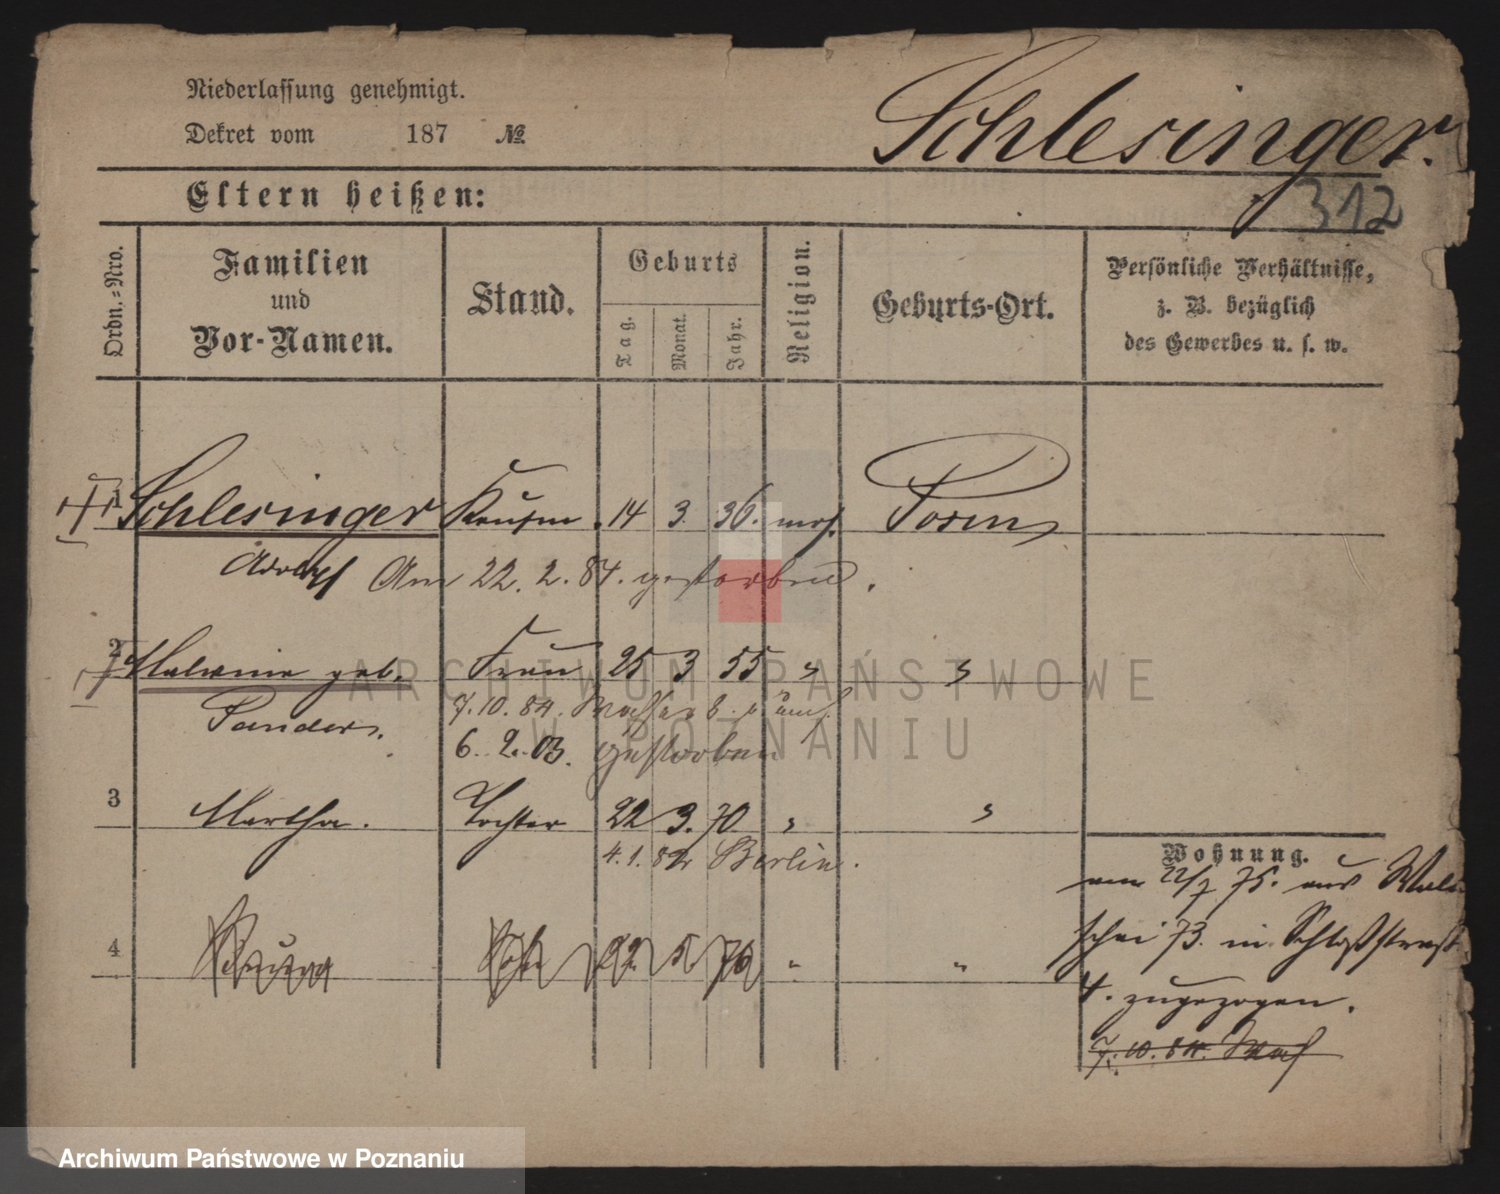 Niederlassung genehmigt.
Dekret vom 187 №
Schlesinger.
Eltern heißen:
312
Ordn.-Nro.
Familien und Vor-Namen.
Stand.
Geburts
Tag.
Monat.
Jahr.
Religion.
Geburts-Ort.
Persönliche Verhältnisse,
z. B. bezüglich
des Gewerbes u. s. w.
1 Schlesinger Kaufm. 14 3. 36. mos. Posen
Adolf Am 22. 2. 84. gestorben.
2 Malwine geb. Frau 25 3 55 " "
Sanders. 7. 10. 84.
6. 2. 03. gestorben
3 Martha. Tochter 22 3. 70 " "
4. 1. 82 Berlin.
Wohnung.
am 22/7 75. aus
73. in Schloßstraß
4. zugezogen.
7. 10. 84.
4 Bruno Sohn 22. 5. 76 " "
ARCHIWUM PAŃSTWOWE
W POZNANIU
Archiwum Państwowe w Poznaniu